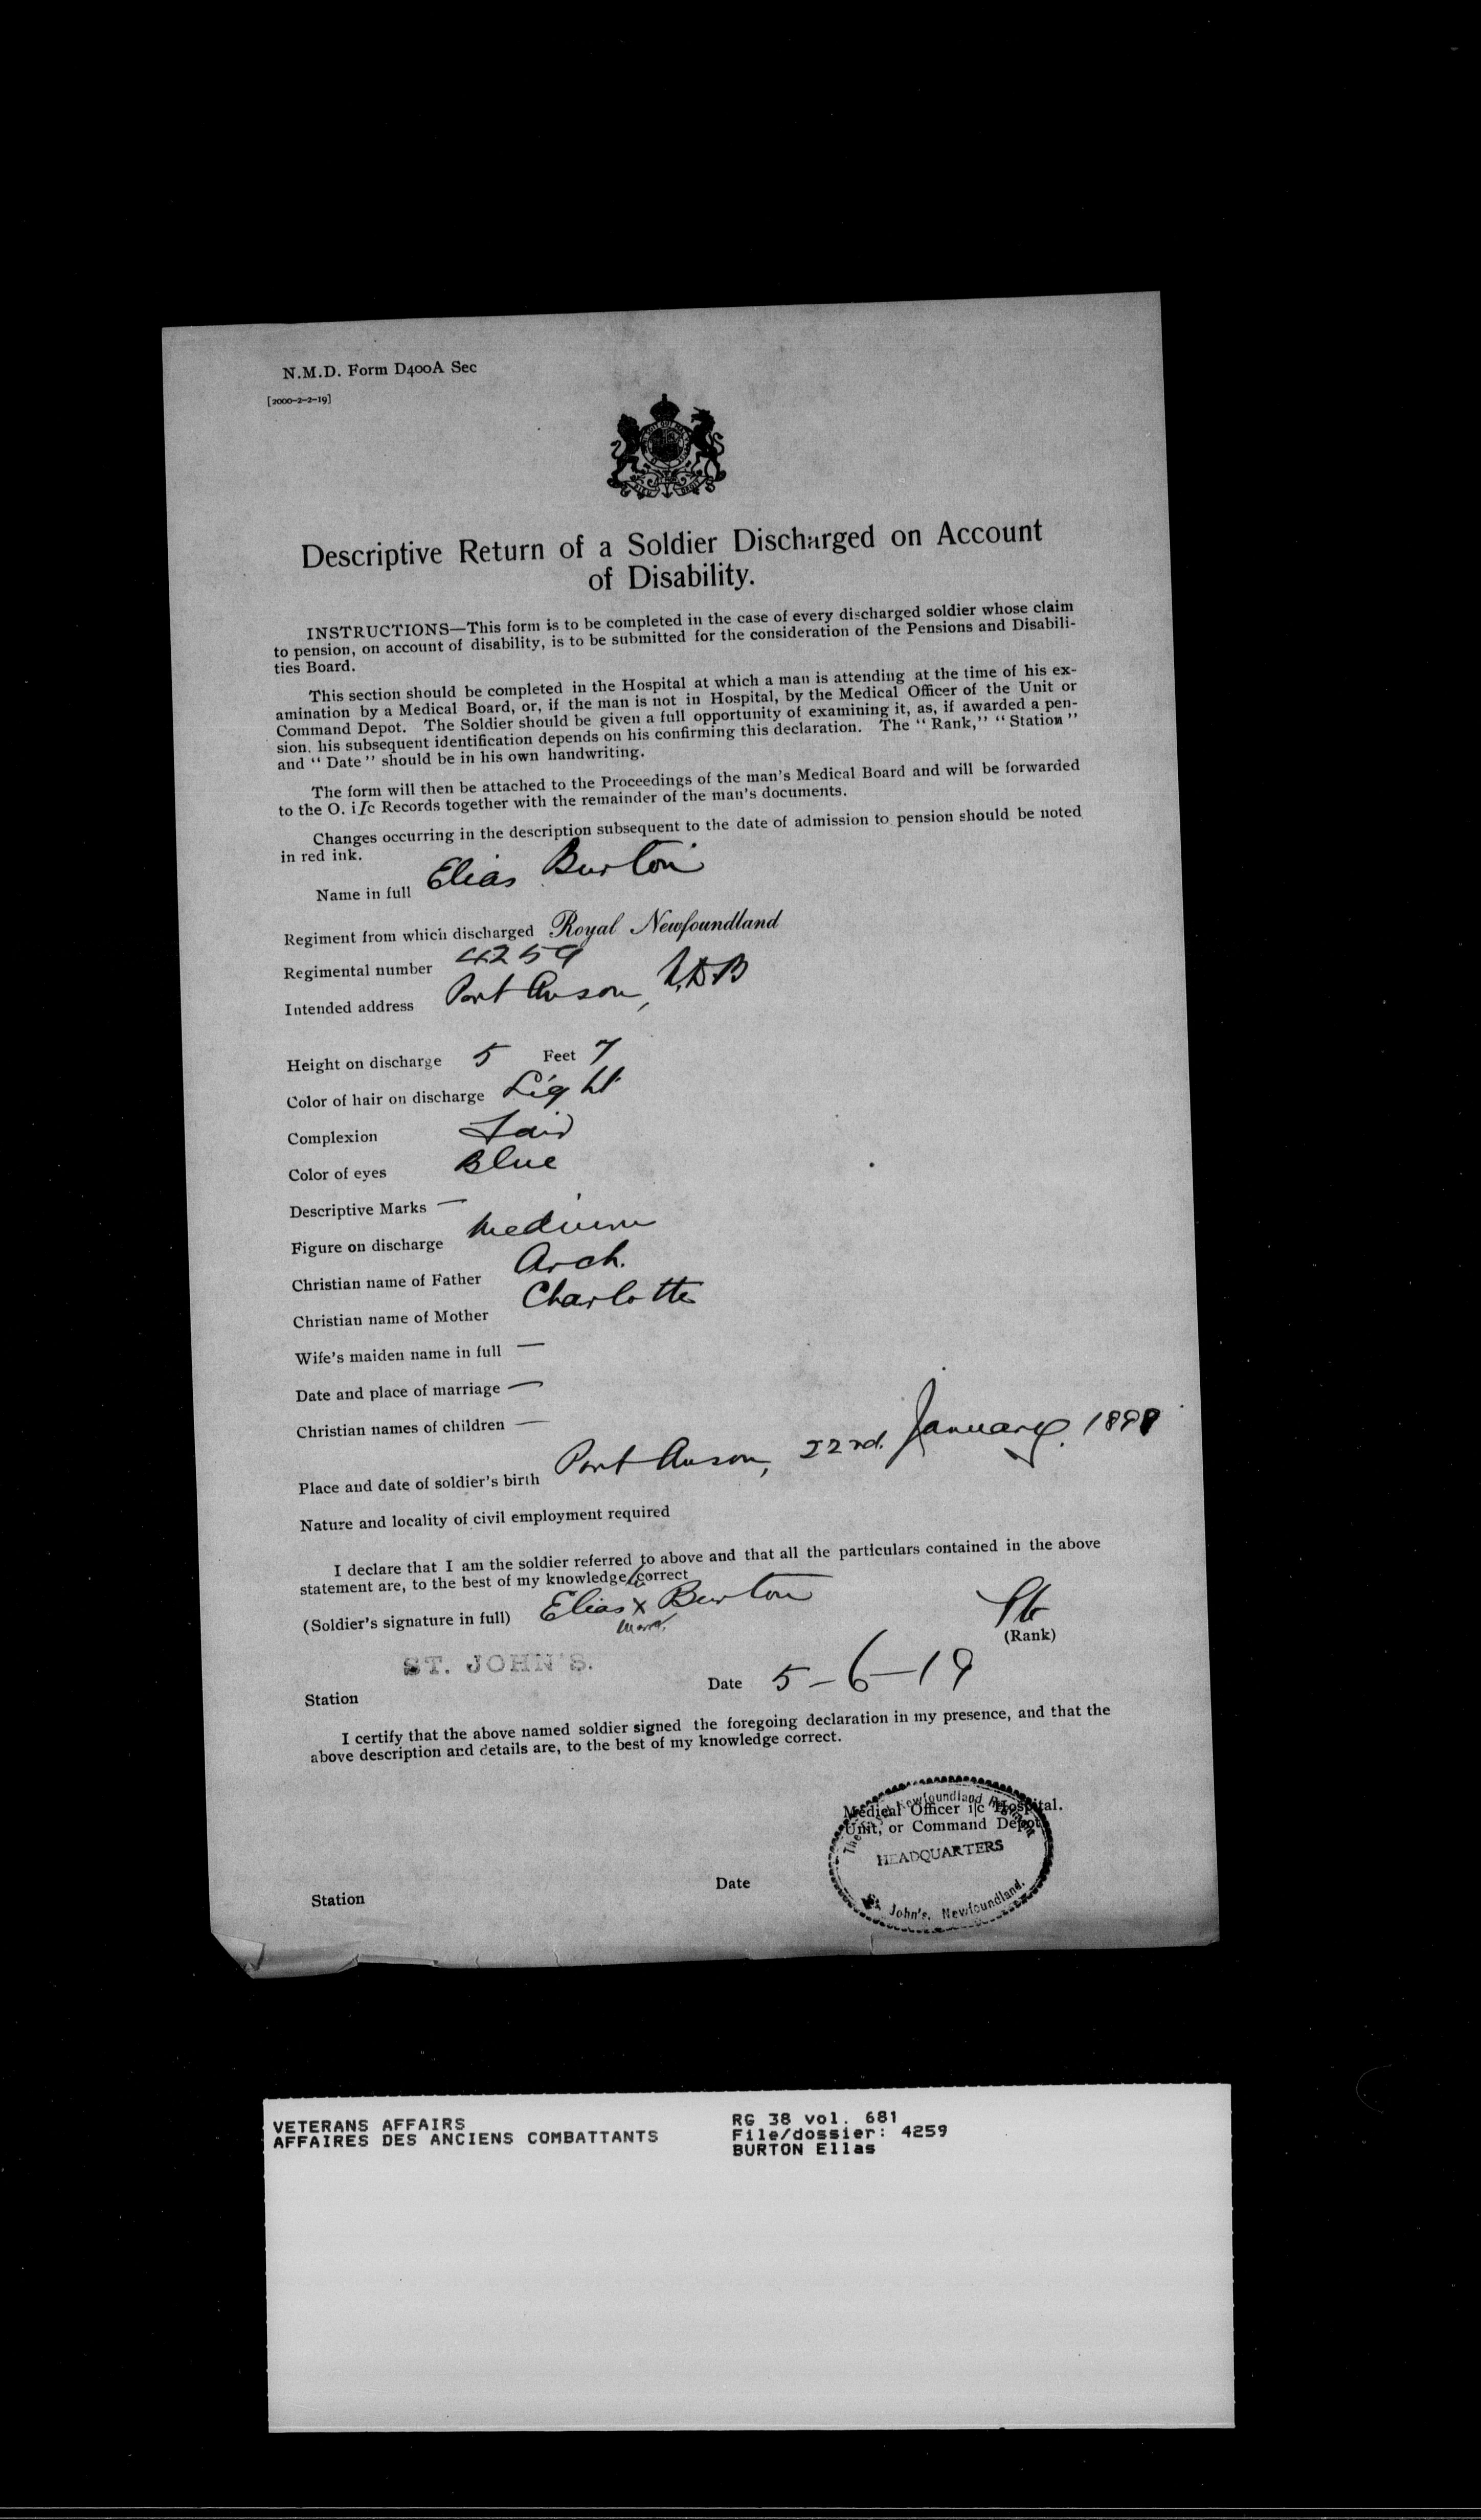 N.M.D. Form D400A Sec
[2000-2-2-19]
Descriptive Return of a Soldier Discharged on Account
of Disability.
INSTRUCTIONS—This form is to be completed in the case of every discharged soldier whose claim
to pension, on account of disability, is to be submitted for the consideration of the Pensions and Disabili-
ties Board.
This section should be completed in the Hospital at which a man is attending at the time of his ex-
amination by a Medical Board, or, if the man is not in Hospital, by the Medical Officer of the Unit or
Command Depot. The Soldier should be given a full opportunity of examining it, as, if awarded a pen-
sion. his subsequent identification depends on his confirming this declaration. The "Rank," "Station"
and "Date" should be in his own handwriting.
The form will then be attached to the Proceedings of the man's Medical Board and will be forwarded
to the O. i/c Records together with the remainder of the man's documents.
Changes occurring in the description subsequent to the date of admission to pension should be noted
in red ink.
Name in full Elias Burton
Regiment from which discharged Royal Newfoundland
Regimental number 4259
Intended address Port Anson, N.D.B
Height on discharge 5 Feet 7
Color of hair on discharge Light
Complexion Fair
Color of eyes Blue
Descriptive Marks —
Figure on discharge Medium
Christian name of Father Arch.
Christian name of Mother Charlotte
Wife's maiden name in full —
Date and place of marriage —
Christian names of children —
Place and date of soldier's birth Port Anson, 22nd. January, 
Nature and locality of civil employment required
I declare that I am the soldier referred to above and that all the particulars contained in the above
statement are, to the best of my knowledge correct
(Soldier's signature in full) Elias X Burton
mark
(Rank)
ST. JOHN'S.
Station Date 5-6-19
I certify that the above named soldier signed the foregoing declaration in my presence, and that the
above description and details are, to the best of my knowledge correct.
Medical Officer i/c Hospital.
Unit, or Command Depot
The Newfoundland
HEADQUARTERS
St. John's, Newfoundland.
Station Date
VETERANS AFFAIRS
AFFAIRES DES ANCIENS COMBATTANTS
RG 38 vol. 681
File/dossier: 4259
BURTON Elias